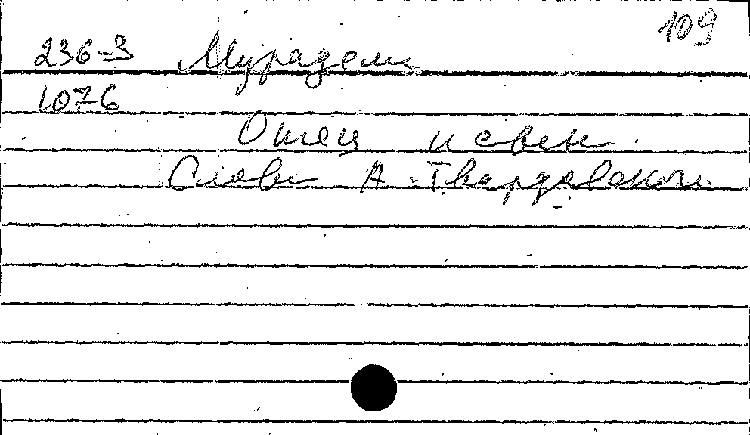 109
236-3 Мурадели
1076
Отец и сын.
Слова А. Твардовского.